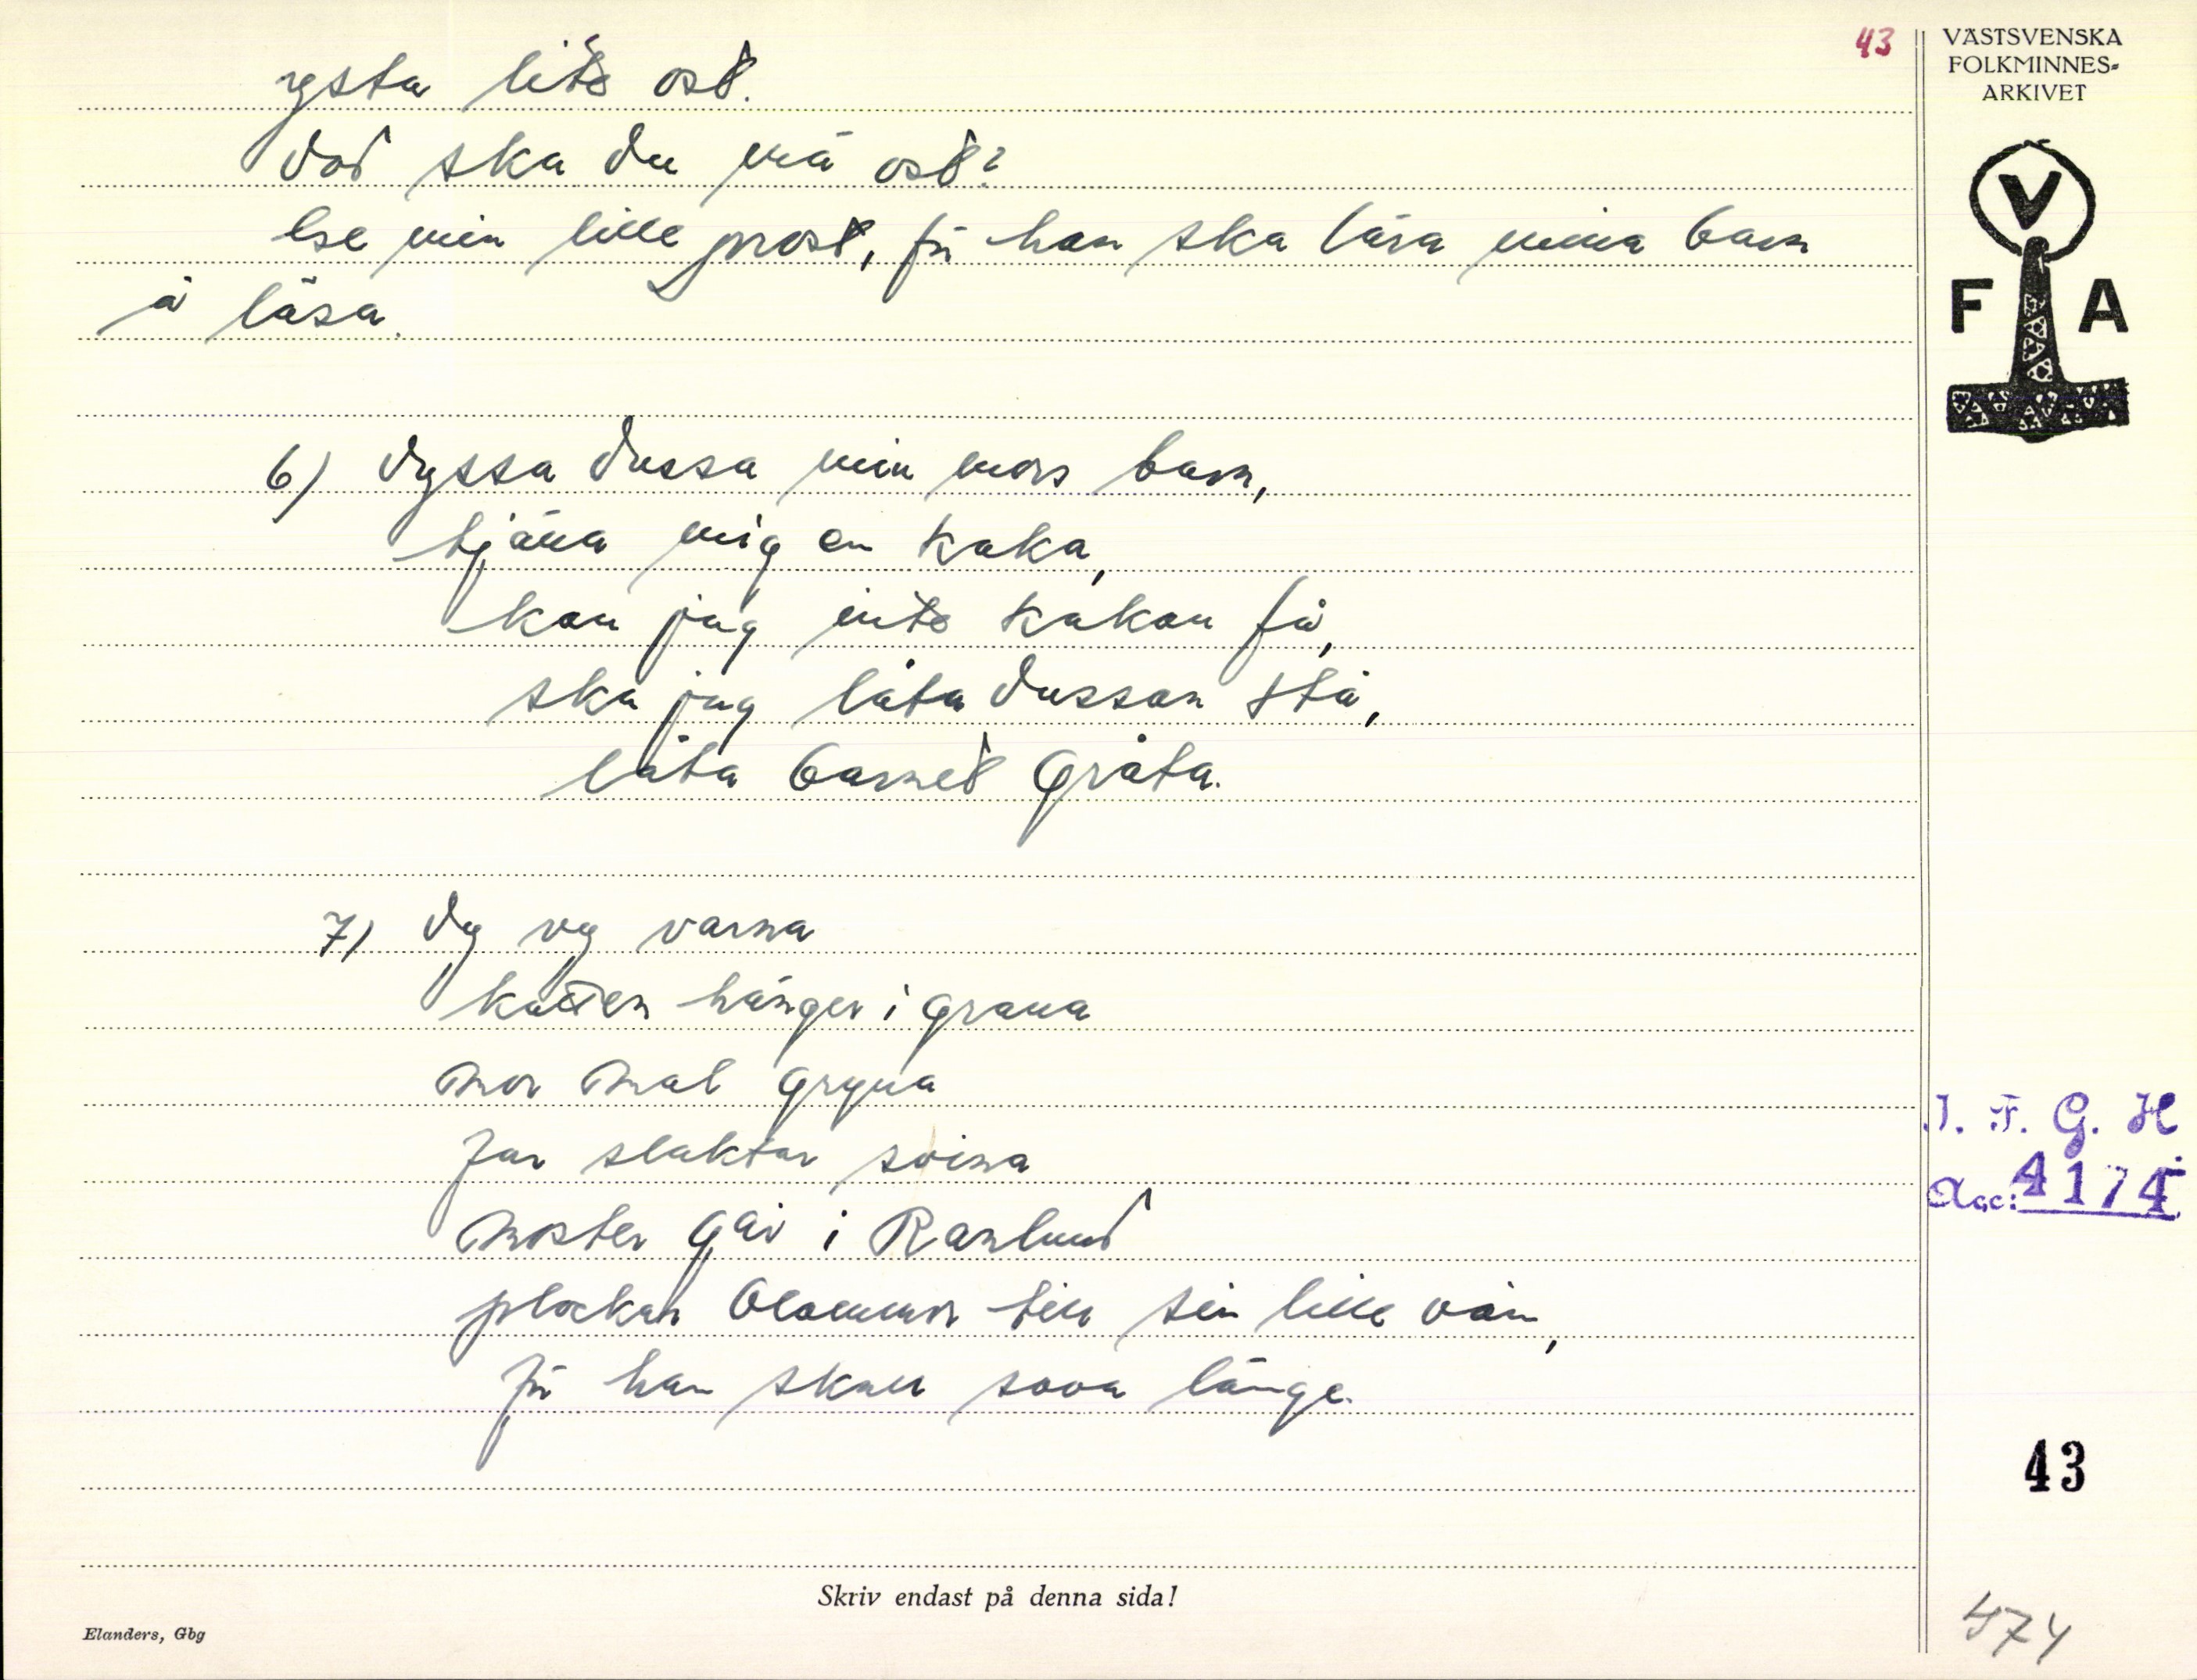 43
VÄSTSVENSKA
FOLKMINNES-
ARKIVET
ysta lite ost.
Vad ska du mä ost?
Ge min lille prost, för han ska lära mina barn
å läsa.
V
F A
6) Vyssa vussa min mors barn,
tjäna mig en kaka,
kan jag inte kakan få,
ska jag låta vussan stå,
låta barnet gråta.
7) Vy vy varna
katten hänger i grana
mor mal gryna
far slaktar svina
moster går i Ranlund
plockar blommor till sin lille vän,
för han skall sova länge.
I. F. G. H.
Acc: 4174
43
Skriv endast på denna sida!
Elanders, Gbg